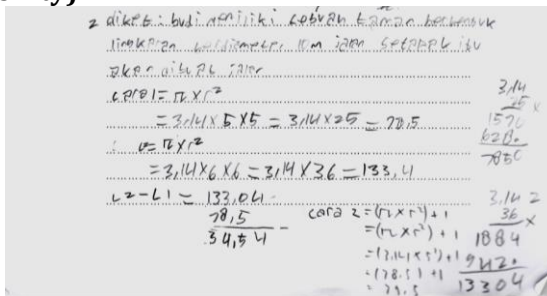 2 diket : budi memiliki sebuah taman berbentuk
lingkaran berdiameter 10m jalan setapak itu
akan dibuat jalan
cara 1 = π x r²
= 3,14 x 5 x 5 = 3,14 x 25 = 78,5
: v = π x r²
= 3,14 x 6 x 6 = 3,14 x 36 = 133,4
L2 - L1 = 133,04
78,5
34,54
cara 2 = (π x r²) + 1
= (π x r²) + 1
= (3,14 x 5²) + 1
= (78,5) + 1
= 79,5
3,14
25 x
1570
6280
7850
3,14 2
36 x
1884
9420
13304